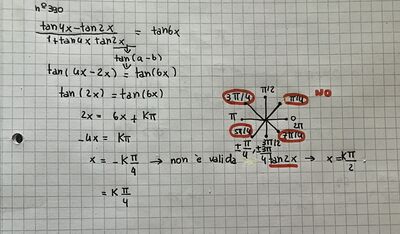 n° 330
tan4x-tan2x / 1+tan4x tan2x = tan6x
tan(a-b)
tan(4x-2x) = tan(6x)
tan(2x) = tan(6x)
2x = 6x + Kπ
-4x = Kπ
x = -K π/4 → non è valida ± π/4, ± 3π/4 tan2x → x = Kπ/2
= K π/4
π/2
3π/4
π/4
NO
π
0
2π
5π/4
7π/4
3π/2